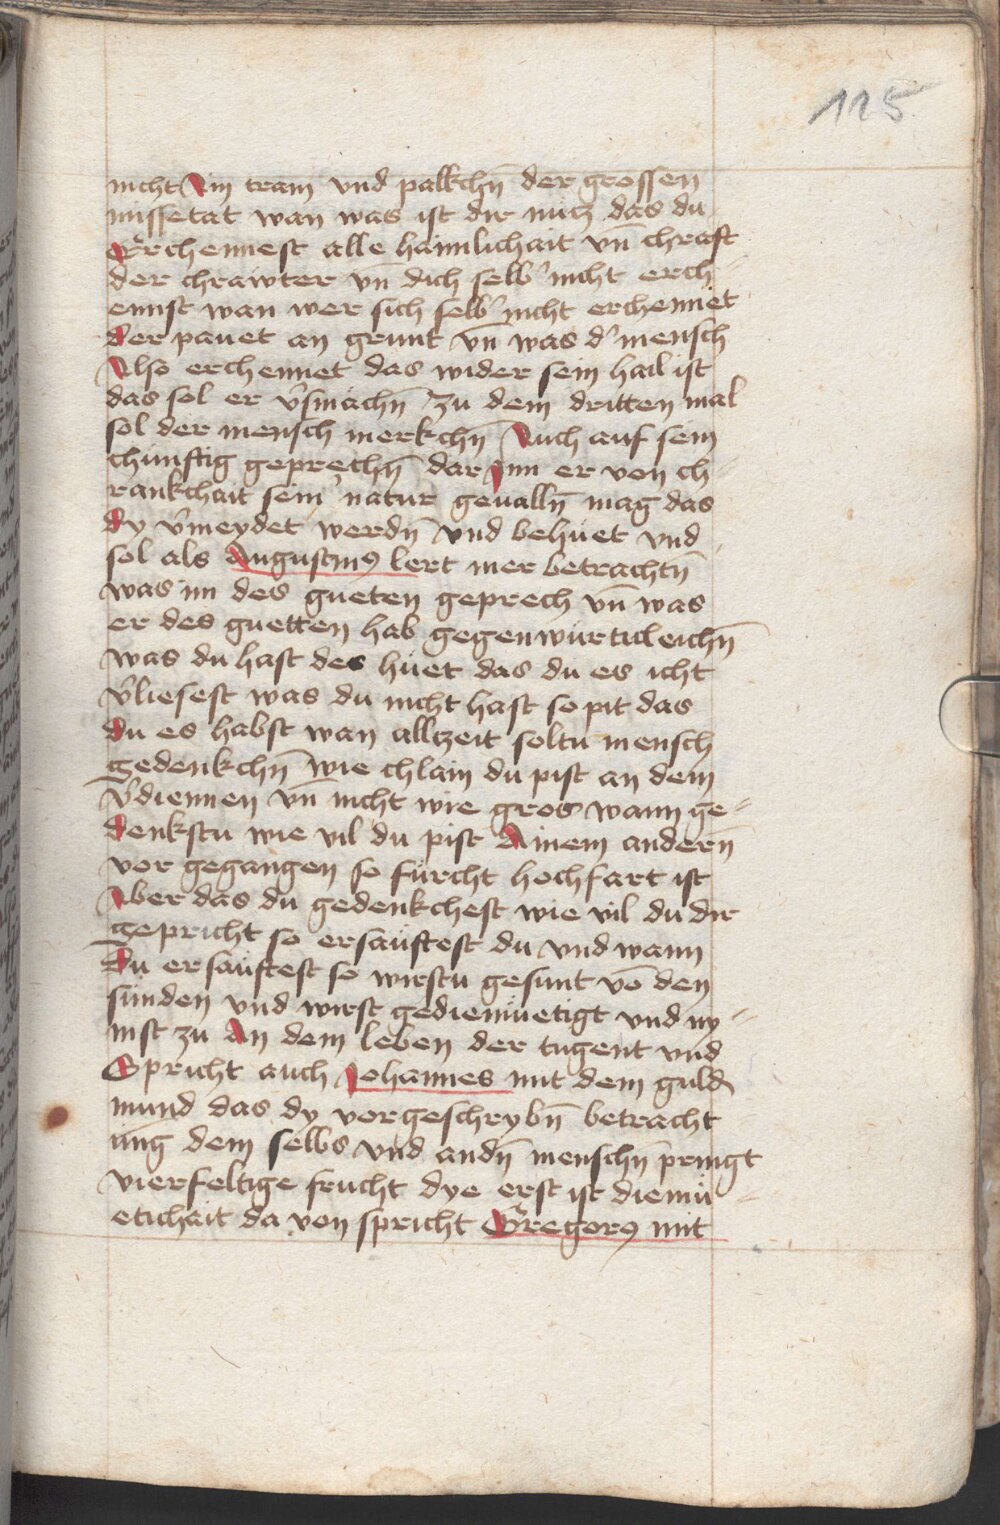 125
nicht Ain tram vnd palkchn̄ der grossen
missetat wan was ist dir nucz das du
Erchennest alle haimlichait vn̄ chraft
der chrawter vn̄ dich selb' nicht erch
ennst wan wer sich selb' nicht erchennet
der pauet an grunt vn̄ was d' mensch
Also erchennet das wider sein hail ist
das sol er v̄smächn̄ zu dem dritten mal
sol der mensch merkchn̄ Auch auf sein
chunftig geprechn̄ dar Inn er von ch-
rankchait sein' natur geualln̄ mag das
dy v̄meydet werdn̄ vnd behüet vnd
sol als Augustin9 lert mer betrachtn̄
was im des gueten geprech vn̄ was
er des guetten hab gegenwürticleichn̄
was du hast des hüet das du es icht
v̄liesest was du nicht hast so pit das
du es habst wan allczeit soltu mensch
gedenkchn̄ wie chlain du pist an dem
v̄diennen vn̄ nicht wie gros wann ge-
denkstu wie vil du pist Ainem andern̄
vor gegangen so fürcht hochfart ist
Aber das du gedenkchest wie vil du dir
gepricht so ersäuftest du vnd wann
Du ersäuftest so wirstu gesunt vō den
sünden vnd wirst gediemüetigt vnd ny-
mst zu An dem leben der tugent vnd
Spricht auch Johannes mit dem guld
mund das dy vorgeschrybn̄ betracht
ung dem selbs vnd andn̄ menschn̄ pringt
vierfeltige frucht dye erst ist diemü-
etichait da von spricht Gregor9 mit